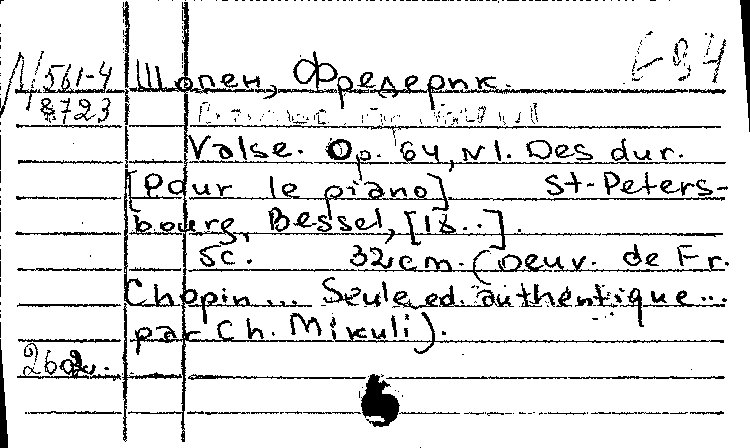 М 561-4 Шопен, Фредерик. Е-94
8723
Valse. Op. 64, N1. Des dur.
[Pour le piano] St-Peters-
bourg, Bessel, [18..].
5c. 32cm. (Oeuv. de Fr.
Chopin... Seule ed. authentique...
par Ch. Mikuli).